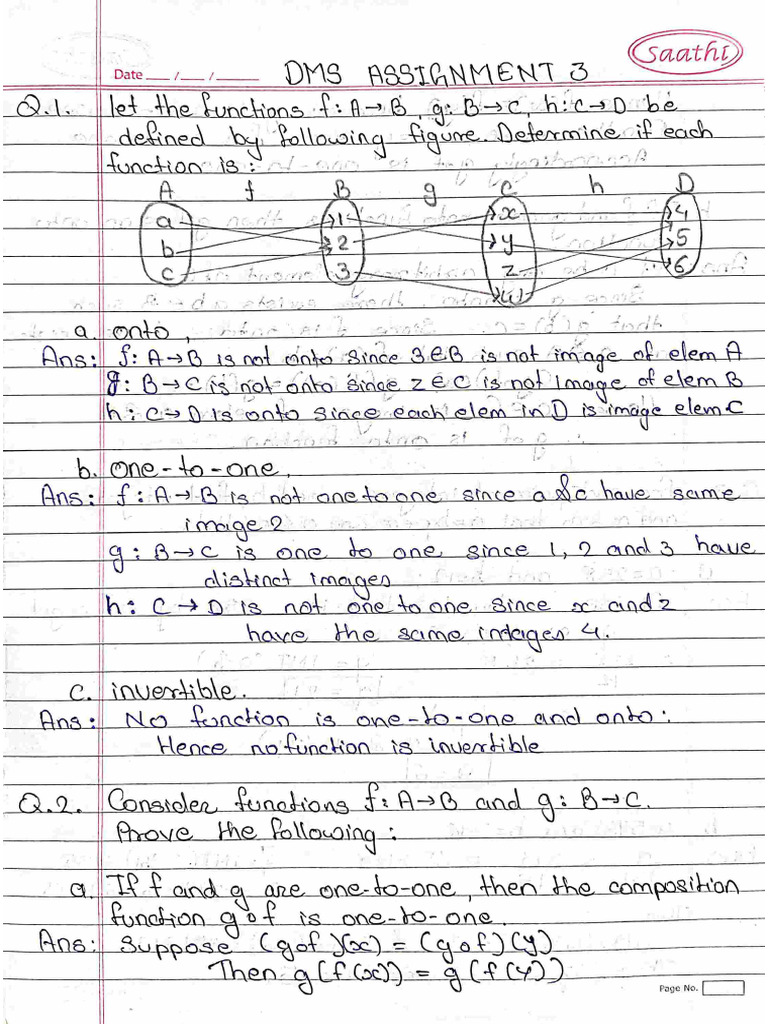 saathi
Date ___ / ___ / ___ DMS ASSIGNMENT 3
Q.1. let the functions f: A→B, g: B→C, h: C→D be
defined by following figure. Determine if each
function is:
A f B g C h D
a 1 x 4
b 2 y 5
c 3 z 6
w
a. onto,
Ans: f: A→B is not onto since 3∈B is not image of elem A
g: B→C is not onto since z∈C is not image of elem B
h: C→D is onto since each elem in D is image elem C
b. one-to-one.
Ans: f: A→B is not one to one since a & c have same
image 2
g: B→C is one to one since 1, 2 and 3 have
distinct images
h: C→D is not one to one since x and z
have the same images 4.
c. invertible.
Ans: No function is one-to-one and onto:
Hence no function is invertible
Q.2. Consider functions f: A→B and g: B→C.
Prove the following:
a. If f and g are one-to-one, then the composition
function gof is one-to-one.
Ans: Suppose (gof)(x) = (gof)(y)
Then g(f(x)) = g(f(y))
Page No.